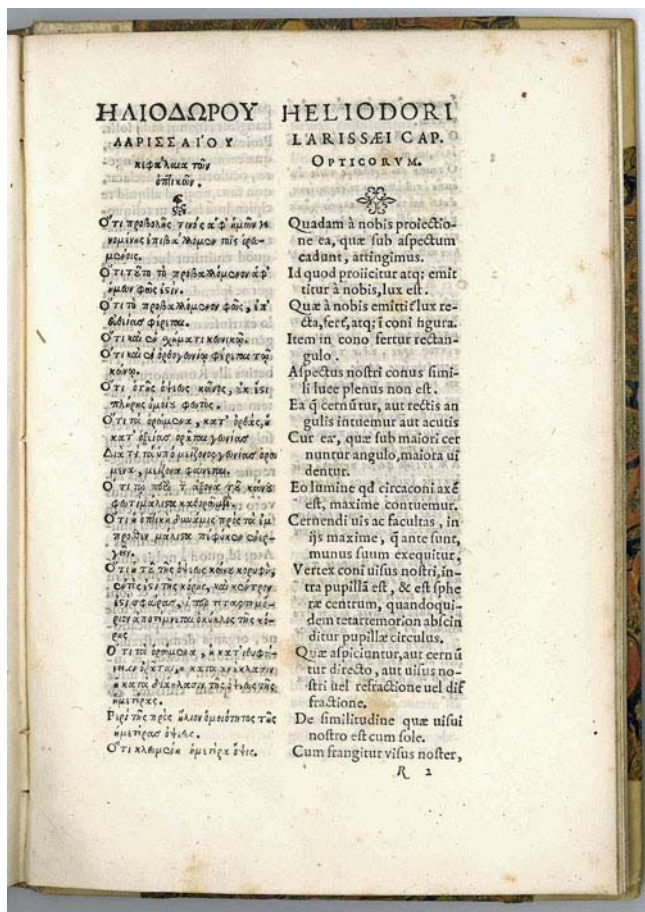 ΗΛΙΟΔΩΡΟΥ
ΛΑΡΙΣΣΑΙΟΥ
κεφάλαια τῶν
ὀπτικῶν.
Ὅτι προβολῆς τινὸς ἀφ' ἡμῶν γι
νομένης ἐπιβάλλομεν τοῖς ὁρω-
μένοις.
Ὅτι τοῦτο τὸ προβαλλόμενον ἀφ'
ἡμῶν φῶς ἐστιν.
Ὅτι τὸ προβαλλόμενον φῶς, ἐπ'
εὐθείας φέρεται.
Ὅτι καὶ ἐν σχήματι κωνικῷ.
Ὅτι καὶ ἐν ὀρθογωνίῳ φέρεται τῷ
κώνῳ.
Ὅτι ὁ τῆς ὄψεως κῶνος, οὐκ ἐστι
πλήρης φωτός.
Ὅτι τὰ ὁρώμενα, κατ' ὀρθὰς, ἢ
κατ' ὀξείας ὁρᾶται γωνίας
Διὰ τί τὰ ὑπὸ μείζονος γωνίας ὁρώ
μενα, μείζονα φαίνεται.
Ὅτι τῷ τὸν ἄξονα τοῦ κώνου
φωτὶ μάλιστα καθορῶμεν.
Ὅτι ἡ ὀπτικὴ δύναμις πρὸς τὰ ἔμ
προσθεν μάλιστα πέφυκεν ἐνερ-
γεῖν.
Ὅτι ἡ τοῦ τῆς ὄψεως κώνου κορυφὴ,
ἐντός ἐστι τῆς κόρης, καὶ κέντρον
ἐστὶ σφαίρας, τεταρτημό-
ριον ἀποτέμνεται ὁ κύκλος τῆς κό-
ρης
Ὅτι τὰ ὁρώμενα, ἢ κατ' ἰθυφά-
νειαν ὁρᾶται, ἢ κατὰ ἀνάκλασιν
ἢ κατὰ διάκλασιν τῆς ὄψεως τῆς
ἡμετέρας.
Περὶ τῆς πρὸς ἥλιον ὁμοιότητος τῆς
ἡμετέρας ὄψεως.
Ὅτι κλωμένη ἡμετέρα ὄψις.
HELIODORI
LARISSÆI CAP.
OPTICORVM.
Quadam à nobis proiectio-
ne ea, quæ sub aspectum
cadunt, attingimus.
Id quod proiicitur atq; emit
titur à nobis, lux est.
Quæ à nobis emittit lux re-
cta, fert, atq; ī coni figura.
Item in cono fertur rectan-
gulo.
Aspectus nostri conus simi-
li luce plenus non est.
Ea q̄ cernūtur, aut rectis an
gulis intuemur aut acutis
Cur ea, quæ sub maiori cer
nuntur angulo, maiora ui
dentur.
Eo lumine qd circa coni axē
est, maxime contuemur.
Cernendi uis ac facultas, in
ijs maxime, q̄ ante sunt,
munus suum exequitur.
Vertex coni uisus nostri, in-
tra pupillā est, & est sphe
ræ centrum, quandoqui-
dem tetartemorion abscin
ditur pupillæ circulus.
Quæ aspiciuntur, aut cernū
tur directo, aut uisus no-
stri uel refractione uel dif
fractione.
De similitudine quæ uisui
nostro est cum sole.
Cum frangitur visus noster,
R 2